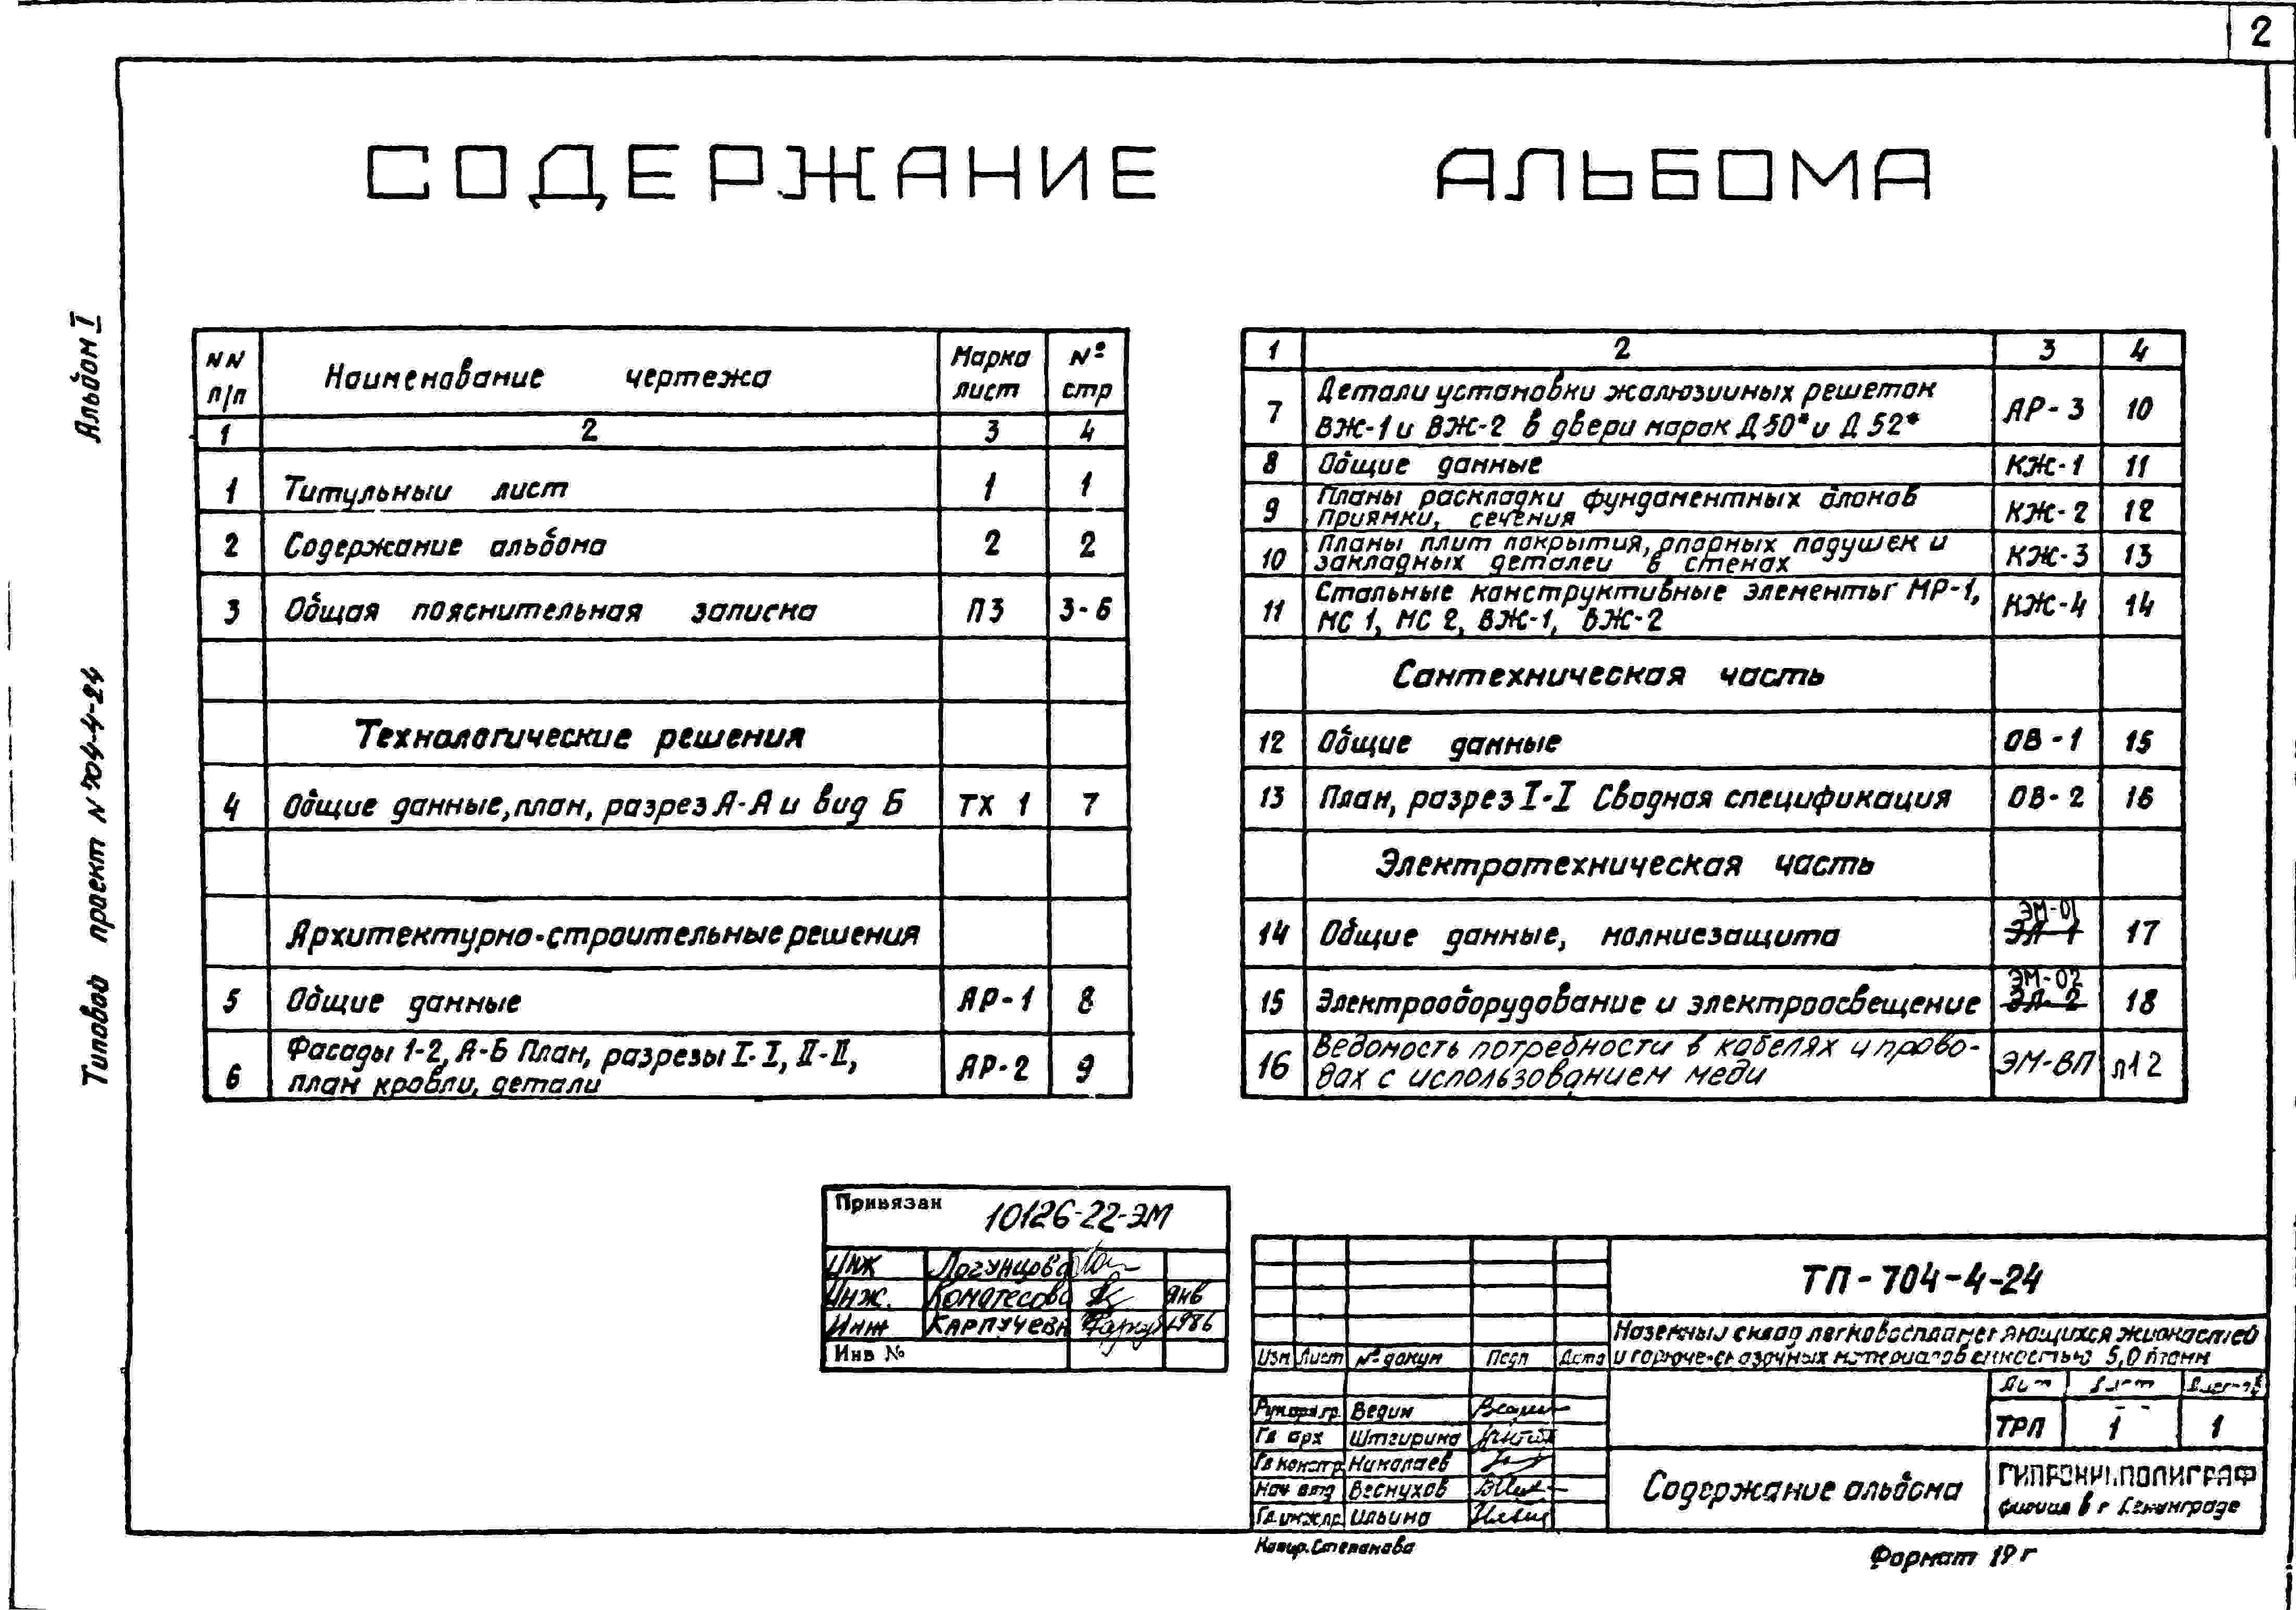 2
СОДЕРЖАНИЕ АЛЬБОМА
Альбом I
Типовой проект N 704-4-24
NN п/п Наименование чертежа Марка лист № стр
1 2 3 4
1 Титульный лист 1 1
2 Содержание альбома 2 2
3 Общая пояснительная записка ПЗ 3-6
Технологические решения
4 Общие данные, план, разрез А-А и вид Б ТХ 1 7
Архитектурно-строительные решения
5 Общие данные АР-1 8
6 Фасады 1-2, А-Б План, разрезы I-I, II-II,
план кровли, детали АР-2 9
1 2 3 4
7 Детали установки жалюзийных решеток
ВЖ-1 и ВЖ-2 в двери марок Д 50* и Д 52* АР-3 10
8 Общие данные КЖ-1 11
9 Планы раскладки фундаментных блоков
приямки, сечения КЖ-2 12
10 Планы плит покрытия, опорных подушек и
закладных деталей в стенах КЖ-3 13
11 Стальные конструктивные элементы МР-1,
МС 1, МС 2, ВЖ-1, ВЖ-2 КЖ-4 14
Сантехническая часть
12 Общие данные ОВ-1 15
13 План, разрез I-I Сводная спецификация ОВ-2 16
Электротехническая часть
ЭМ-01
14 Общие данные, молниезащита ЭЛ-1 17
ЭМ-02
15 Электрооборудование и электроосвещение ЭЛ-2 18
16 Ведомость потребности в кабелях и прово-
дах с использованием меди ЭМ-ВП л12
Привязан 10126-22-ЭМ
Инж Логунцова
Инж. янв
Инж Карпучева 1986
Инв №
ТП-704-4-24
Наземный склад легковоспламеняющихся жидкостей
и горюче-смазочных материалов емкостью 5,0 тонн
Изм Лист № докум Подп Дата
Лит Лист Листов
ТРП 1 1
Рук.арх.гр. Ведин
Гл арх Штгирина
Гл констр Николаев
Нач отд Веснухов
Гл инж пр. Ильина
Содержание альбома
ГИПРОНИИПОЛИГРАФ
филиал в г Ленинграде
Копир. Степанова
Формат 12г